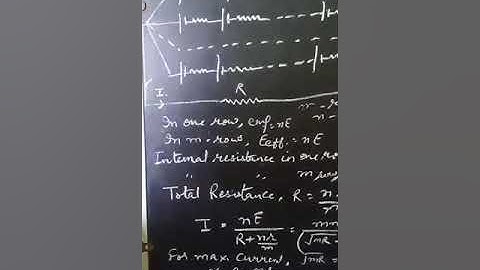 I R
m - r
In one row, emf = nE n -
In m - rows, Eeff. = nE
Internal resistance in one ro
" " m
Total Resistance, R = n
I = nE / (R + nr/m) = mn / (√mR -
For max. Current, √mR =